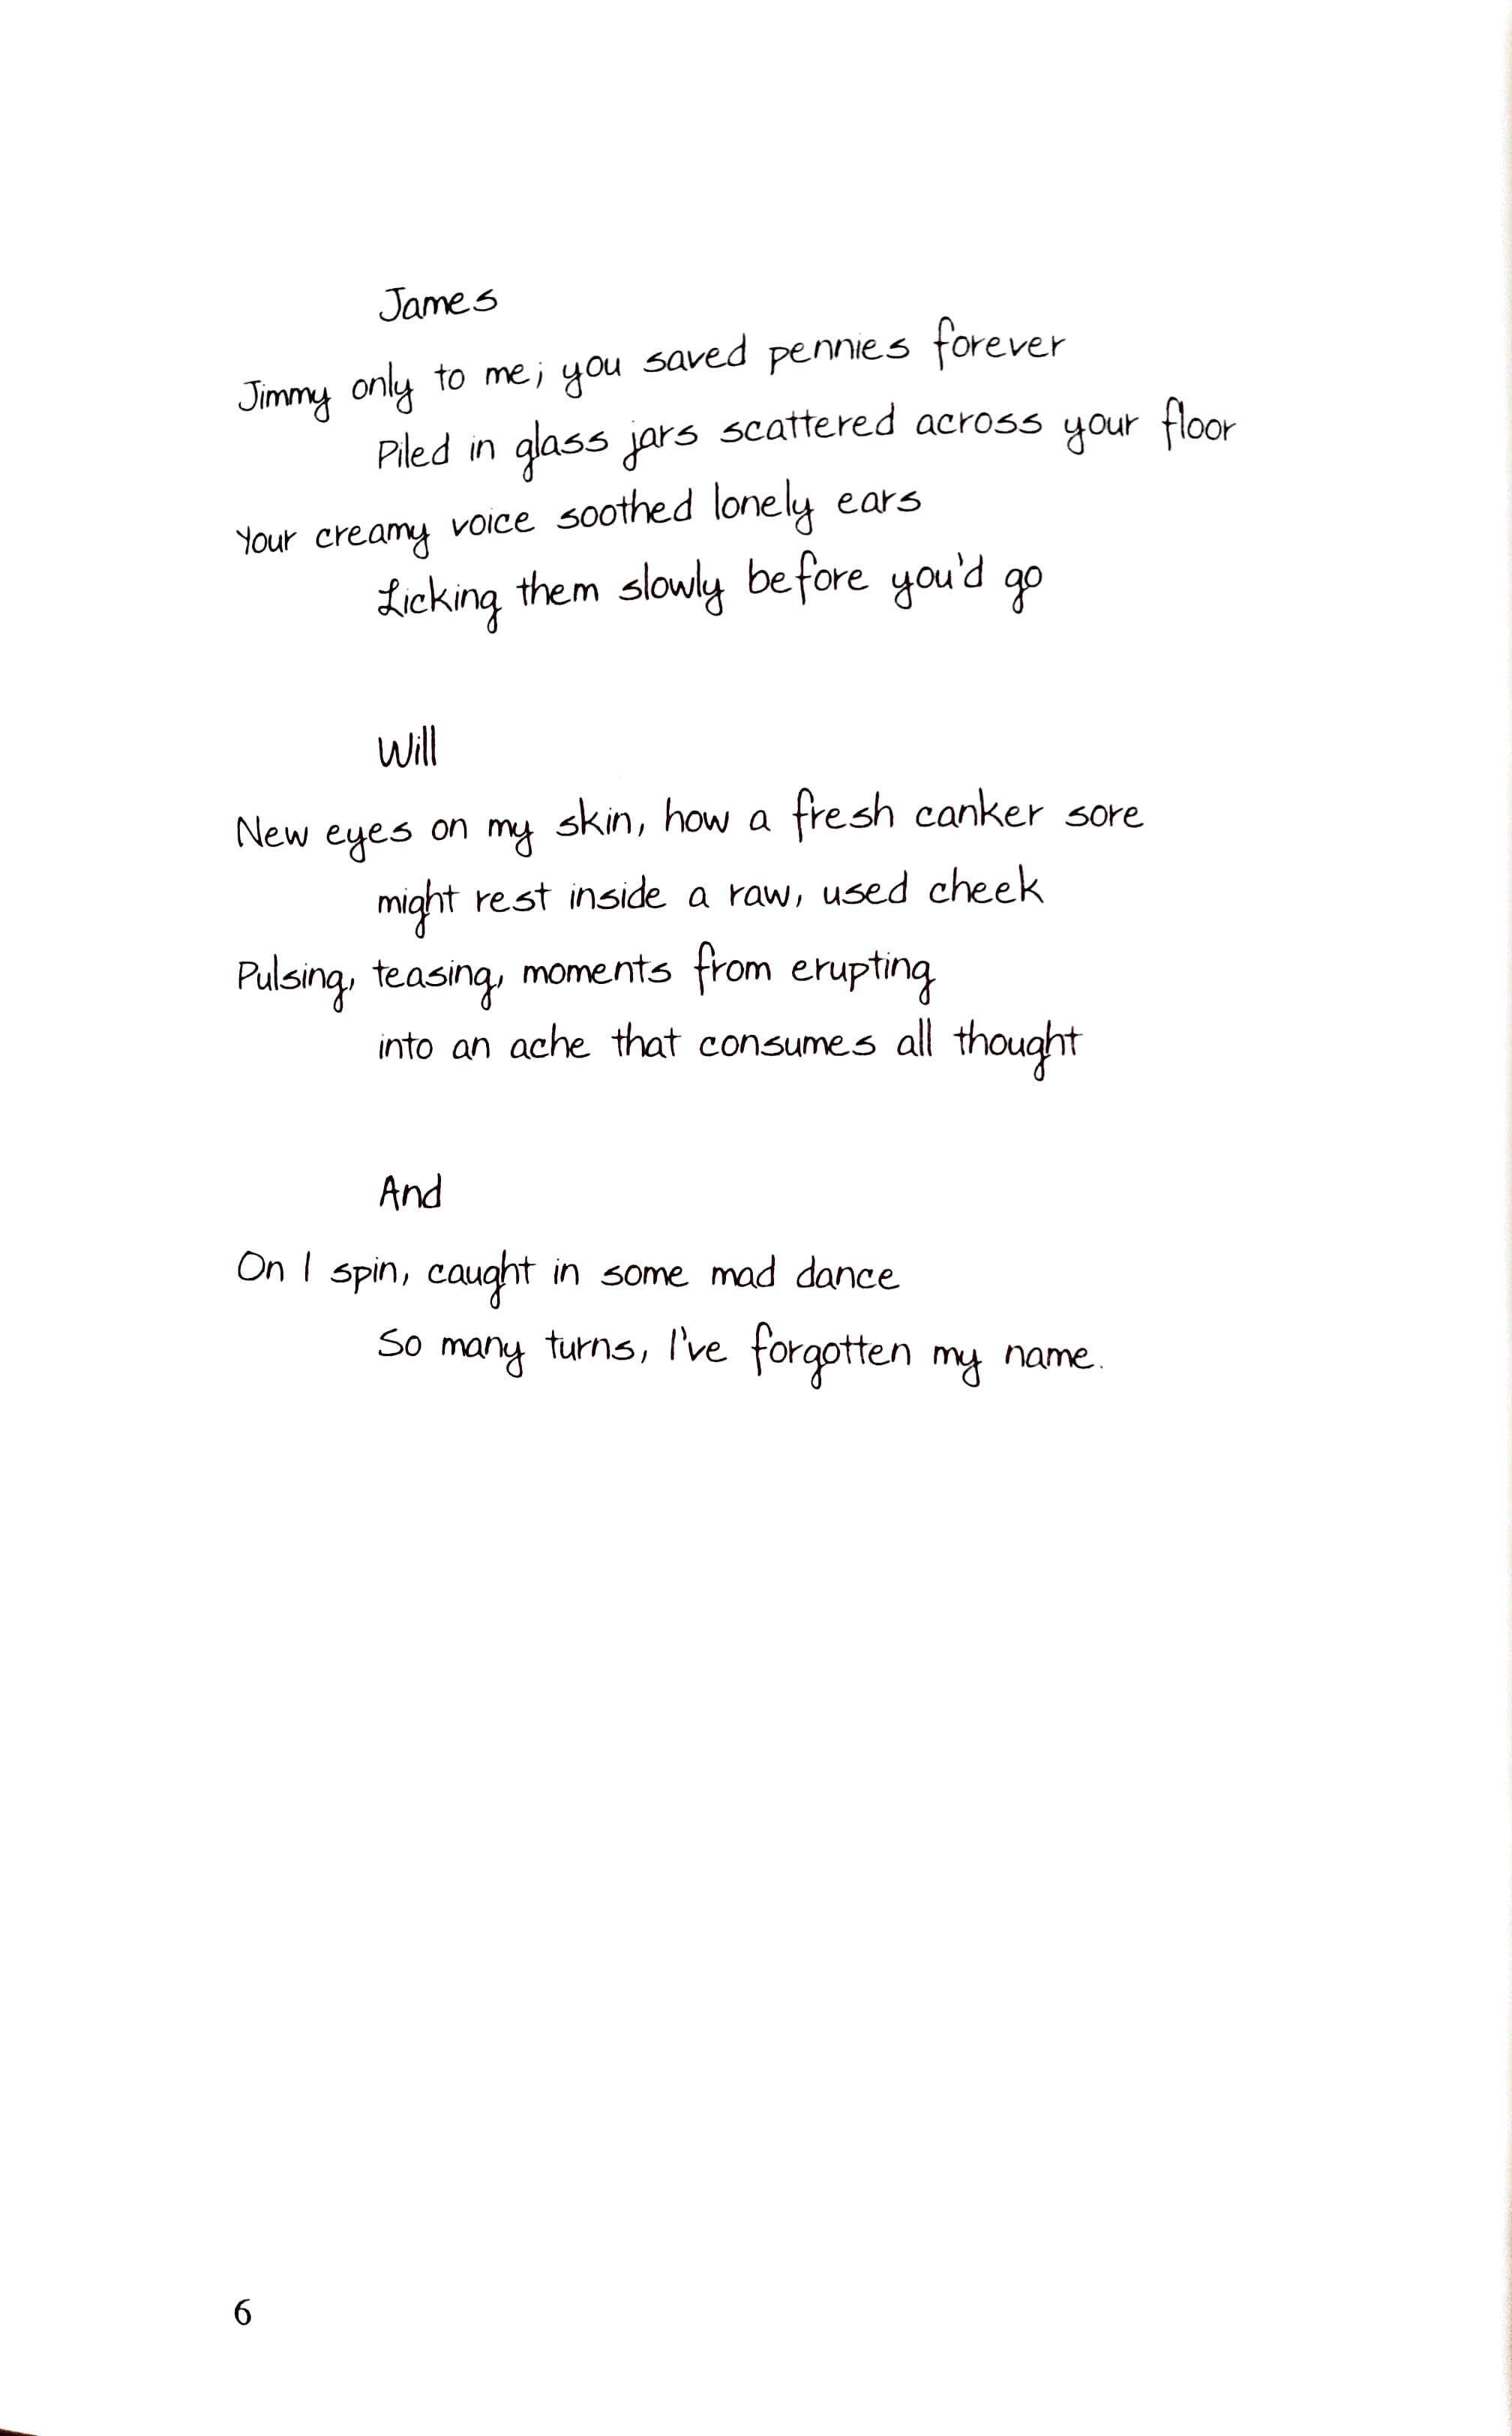 James
Jimmy only to me; you saved pennies forever
Piled in glass jars scattered across your floor
Your creamy voice soothed lonely ears
Licking them slowly before you'd go
Will
New eyes on my skin, how a fresh canker sore
might rest inside a raw, used cheek
Pulsing, teasing, moments from erupting
into an ache that consumes all thought
And
On I spin, caught in some mad dance
So many turns, I've forgotten my name.
6